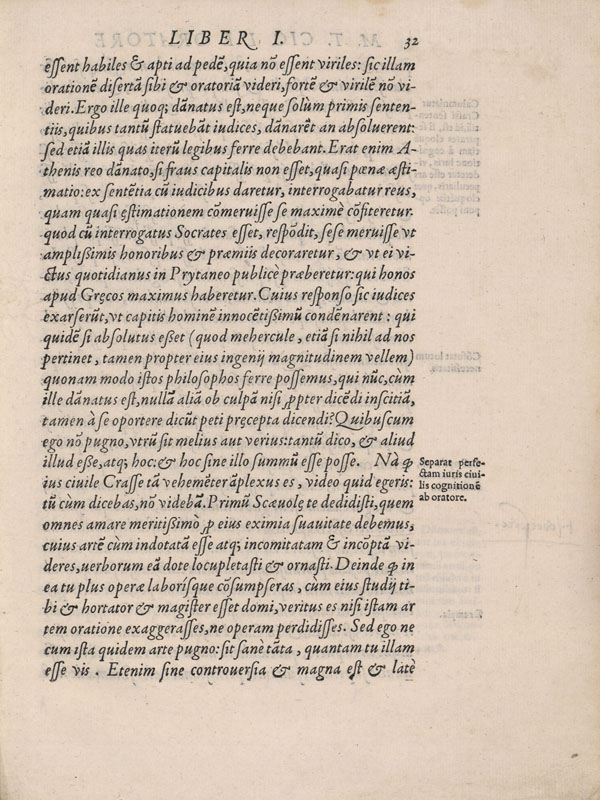 LIBER I. 32
eſſent habiles & apti ad pedē, quia nō eſſent viriles: ſic illam
orationē diſertā ſibi & oratoriā videri, fortē & virilē nō vi-
deri. Ergo ille quoq; dānatus eſt, neque ſolum primis ſenten-
tiis, quibus tantū ſtatuebāt iudices, dānarēt an abſoluerent:
ſed etiā illis quas iterū legibus ferre debebant. Erat enim A-
thenis reo dānato, ſi fraus capitalis non eſſet, quaſi pœnæ æſti-
matio: ex ſentētia cū iudicibus daretur, interrogabatur reus,
quam quaſi ęſtimationem cōmeruiſſe ſe maximè cōfiteretur.
quod cū interrogatus Socrates eſſet, reſpōdit, ſeſe meruiſſe vt
ampliſſimis honoribus & præmiis decoraretur, & vt ei vi-
ctus quotidianus in Prytaneo publicè præberetur: qui honos
apud Gręcos maximus haberetur. Cuius reſponſo ſic iudices
exarſerūt, vt capitis hominē innocētiſſimū condēnarent: qui
quidē ſi abſolutus eſſet (quod mehercule, etiā ſi nihil ad nos
pertinet, tamen propter eius ingenij magnitudinem vellem)
quonam modo iſtos philoſophos ferre poſſemus, qui nūc, cùm
ille dānatus eſt, nullā aliā ob culpā niſi ꝓpter dicēdi inſcitiā,
tamen à ſe oportere dicūt peti pręcepta dicendi? Quibuſcum
ego nō pugno, vtrū ſit melius aut verius: tantū dico, & aliud
illud eſſe, atq; hoc: & hoc ſine illo ſummū eſſe poſſe. Nā ꝙ
ius ciuile Craſſe tā vehemēter āplexus es, video quid egeris:
tū cùm dicebas, nō videbā. Primū Scæuolę te dedidiſti, quem
omnes amare meritiſſimo ꝓ eius eximia ſuauitate debemus,
cuius artē cùm indotatā eſſe atq; incomitatam & incōptā vi-
deres, uerborum eā dote locupletaſti & ornaſti. Deinde ꝙ in
ea tu plus operæ laboriſque cōſumpſeras, cùm eius ſtudij ti-
bi & hortator & magiſter eſſet domi, veritus es niſi iſtam ar
tem oratione exaggeraſſes, ne operam perdidiſſes. Sed ego ne
cum iſta quidem arte pugno: ſit ſanè tāta, quantam tu illam
eſſe vis. Etenim ſine controuerſia & magna eſt & latè
Separat perfe-
ctam iuris ciui-
lis cognitionē
ab oratore.